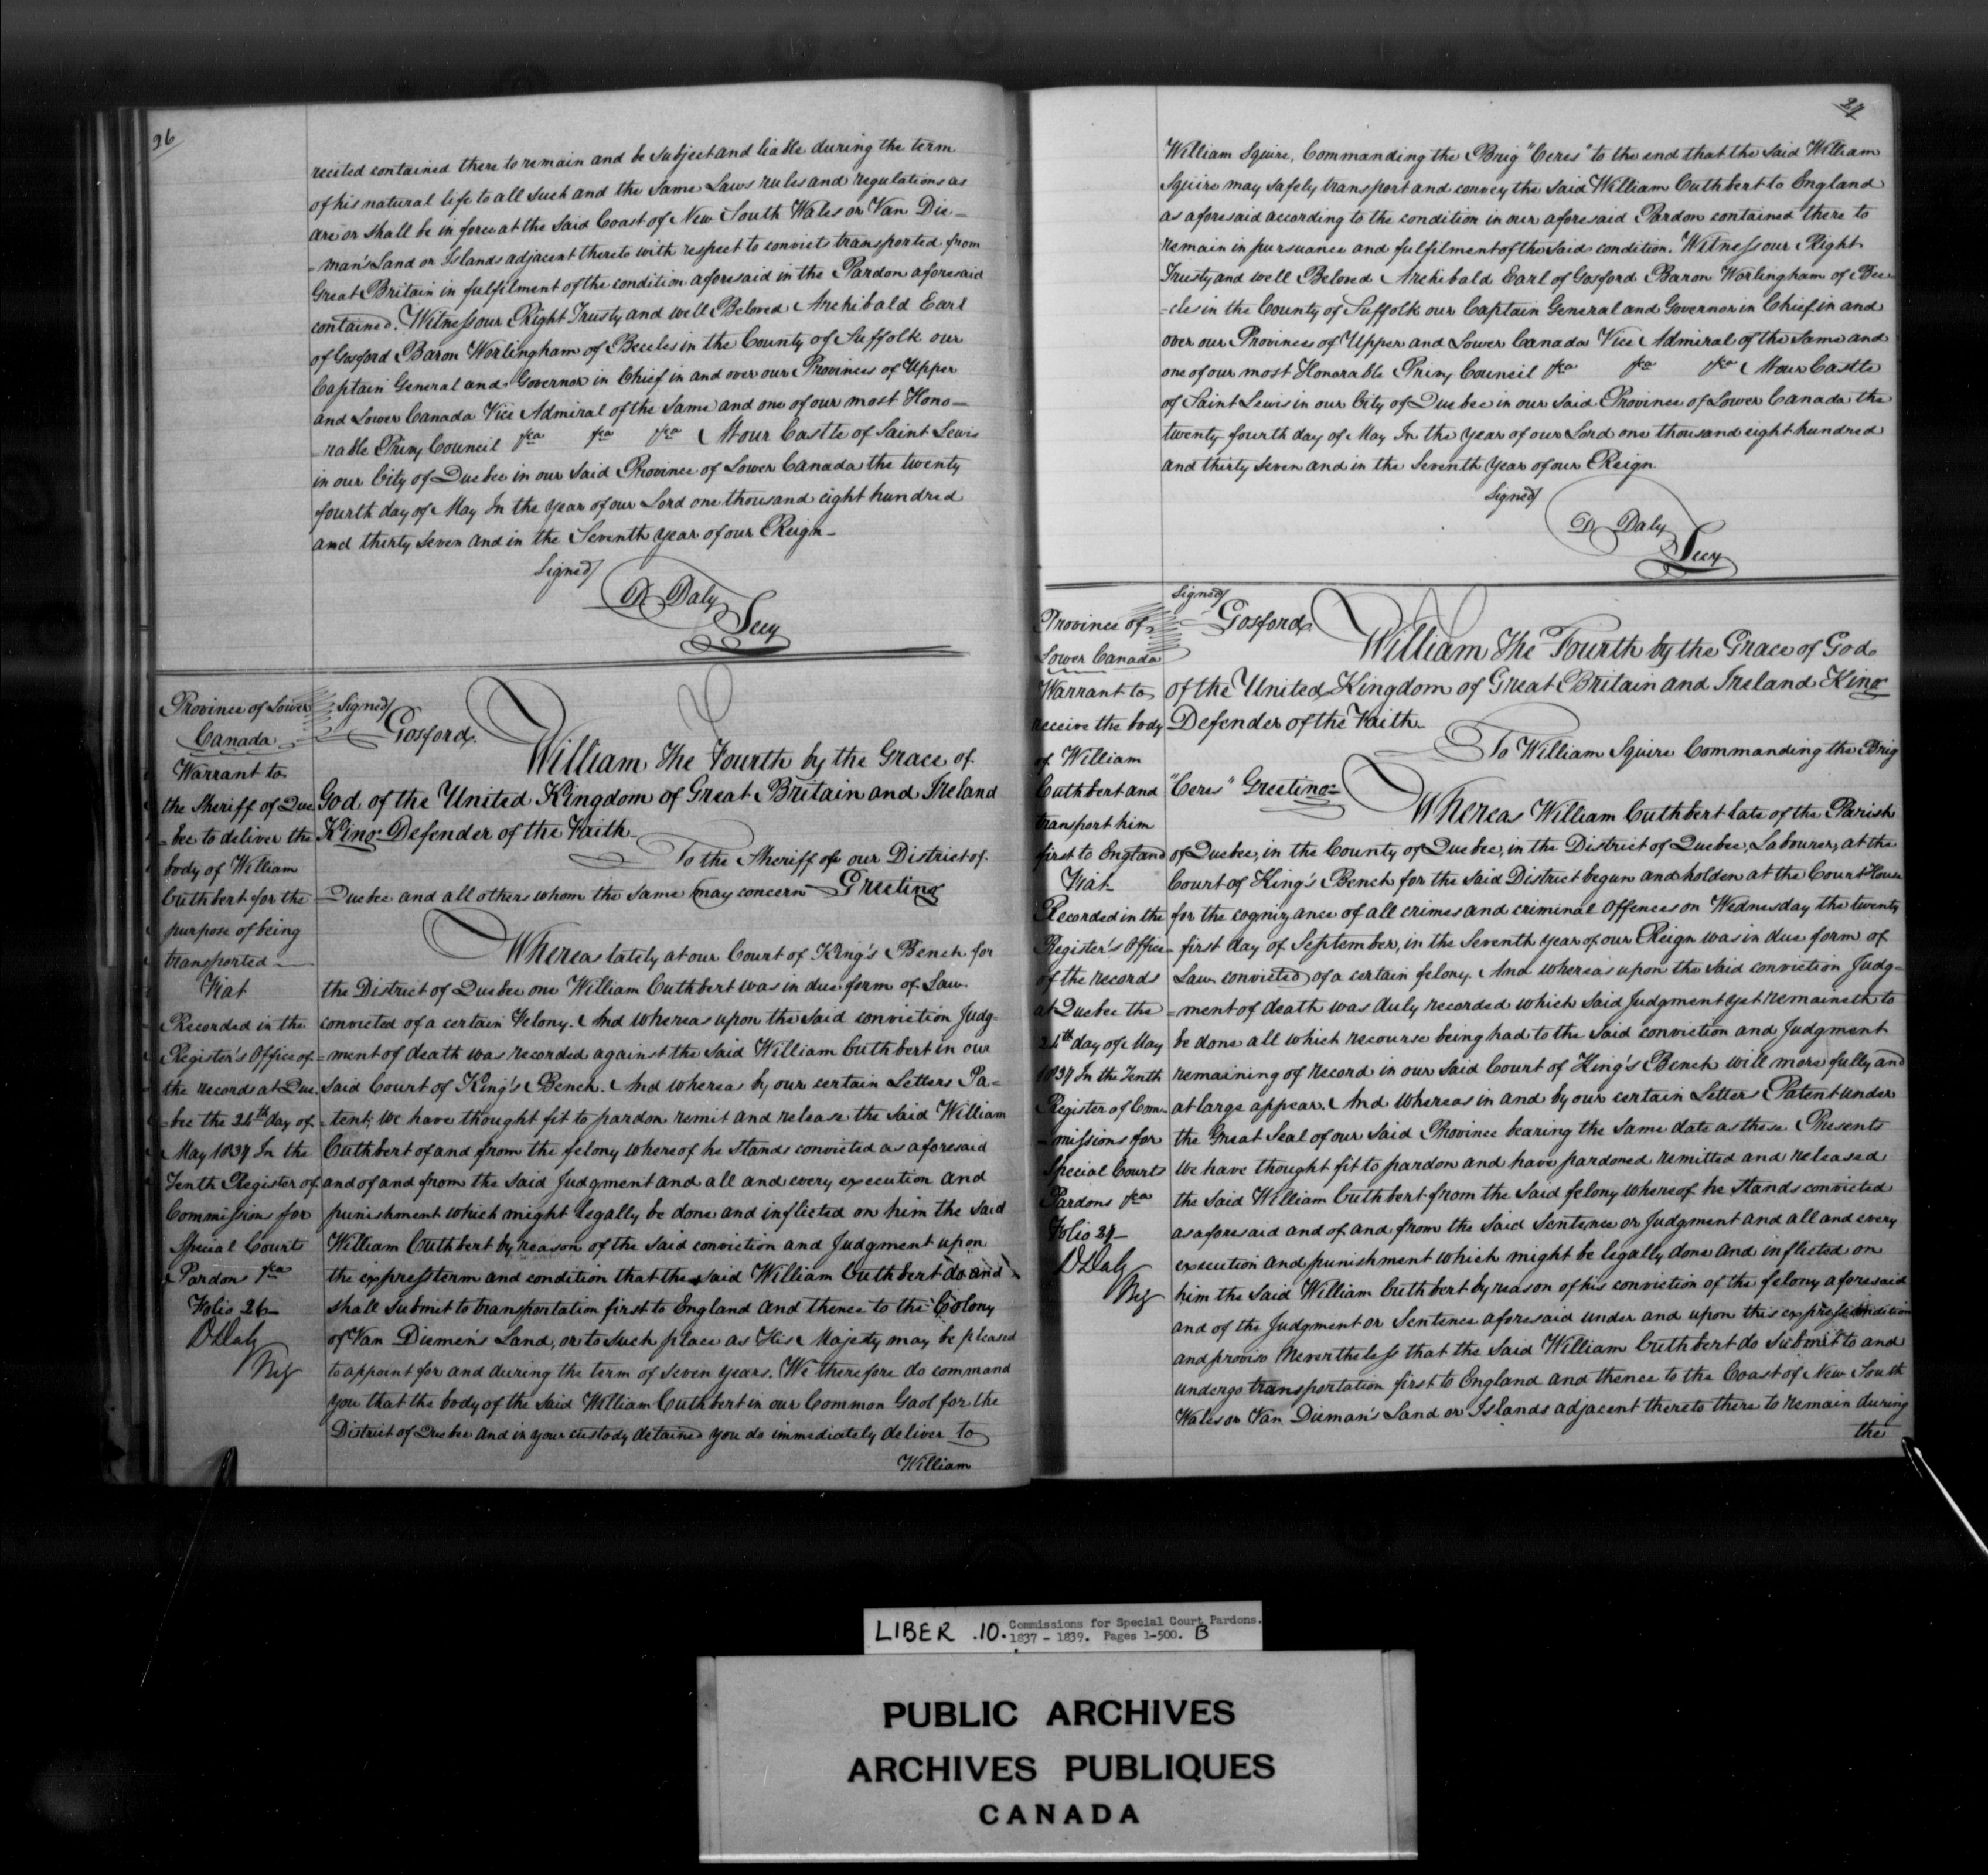 26
recited contained there to remain and be subject and liable during the term
of his natural life to all such and the same Laws rules and regulations as
are or shall be in force at the said Coast of New South Wales or Van Die=
=man's Land or Islands adjacent thereto with respect to convicts transported from
Great Britain in fulfilment of the condition aforesaid in the Pardon aforesaid
contained. Witness our Right Trusty and well Beloved Archibald Earl
of Gosford Baron Worlingham of Beccles in the County of Suffolk our
Captain General and Governor in Chief in and over our Provinces of Upper
and Lower Canada Vice Admiral of the same and one of our most Hono=
=rable Privy Council &ca &ca &ca At our Castle of Saint Lewis
in our City of Quebec in our said Province of Lower Canada the twenty
fourth day of May In the year of our Lord one thousand eight hundred
and thirty seven and in the Seventh year of our Reign_
Signed/
D Daly
Secy
Province of Lower
Canada
Warrant to
the Sheriff of Que
=bec to deliver the
body of William
Cuthbert for the
purpose of being
transported
Fiat
Recorded in the
Register's Office of
the records at Que
=bec the 24th day of
May 1837 In the
Tenth Register of
Commissions for
Special Courts
Pardons &ca
Folio 26_
D Daly
Reg
Signed/
Gosford.
William the Fourth by the Grace of
God of the United Kingdom of Great Britain and Ireland
King Defender of the Faith_
To the Sheriff of our District of
Quebec and all others whom the same may concern Greeting
Whereas lately at our Court of King's Bench for
the District of Quebec one William Cuthbert was in due form of Law
convicted of a certain Felony. And whereas upon the said conviction Judg=
=ment of death was recorded against the said William Cuthbert in our
said Court of King's Bench. And whereas by our certain Letters Pa=
=tent, we have thought fit to pardon remit and release the said William
Cuthbert of and from the felony whereof he stands convicted as aforesaid
and of and from the said Judgment and all and every execution and
punishment which might legally be done and inflicted on him the said
William Cuthbert by reason of the said conviction and Judgment upon
the express term and condition that the said William Cuthbert do and
shall submit to transportation first to England and thence to the Colony
of Van Diemen's Land, or to such place as His Majesty may be pleased
to appoint for and during the term of seven years. We therefore do command
you that the body of the said William Cuthbert in our Common Gaol for the
District of Quebec and in your custody detained you do immediately deliver to
William
27
William Squire, Commanding the Brig "Ceres" to the end that the said William
Squire may safely transport and convey the said William Cuthbert to England
as aforesaid according to the condition in our aforesaid Pardon contained there to
remain in pursuance and fulfilment of the said condition. Witness our Right
Trusty and well Beloved Archibald Earl of Gosford Baron Worlingham of Bec
=cles in the County of Suffolk our Captain General and Governor in Chief in and
over our Provinces of Upper and Lower Canada Vice Admiral of the same and
one of our most Honorable Privy Council &ca &ca &ca At our Castle
of Saint Lewis in our City of Quebec in our said Province of Lower Canada the
twenty fourth day of May In the year of our Lord one thousand eight hundred
and thirty seven and in the Seventh year of our Reign
Signed/
D Daly
Secy
Province of
Lower Canada
Warrant to
receive the body
of William
Cuthbert and
transport him
first to England
Fiat
Recorded in the
Register's Office
of the records
at Quebec the
24th day of May
1837 In the Tenth
Register of Com
=missions for
Special Courts
Pardons &ca
Folio 27_
D Daly
Reg
Signed/
Gosford.
William the Fourth by the Grace of God
of the United Kingdom of Great Britain and Ireland King
Defender of the Faith_
To William Squire Commanding the Brig
"Ceres" Greeting=
Whereas William Cuthbert late of the Parish
of Quebec, in the County of Quebec, in the District of Quebec, Labourer, at the
Court of King's Bench for the said District begun and holden at the Court House
for the cognizance of all crimes and criminal offences on Wednesday the twenty
first day of September, in the Seventh year of our Reign was in due form of
Law convicted of a certain felony. And whereas upon the said conviction Judg=
=ment of death was duly recorded which said Judgment yet remaineth to
be done all which recourse being had to the said conviction and Judgment
remaining of record in our said Court of King's Bench will more fully and
at large appear. And whereas in and by our certain Letters Patent under
the Great Seal of our said Province bearing the same date as these Presents
we have thought fit to pardon and have pardoned remitted and released
the said William Cuthbert from the said felony whereof he stands convicted
as aforesaid and of and from the said sentence or Judgment and all and every
execution and punishment which might be legally done and inflicted on
him the said William Cuthbert by reason of his conviction of the felony aforesaid
and of the Judgment or Sentence aforesaid under and upon this express condition
and proviso Nevertheless that the said William Cuthbert do submit to and
undergo transportation first to England and thence to the Coast of New South
Wales or Van Dieman's Land or Islands adjacent thereto there to remain during
the
LIBER .10. Commissions for Special Court Pardons.
1837 - 1839. Pages 1-500. B
PUBLIC ARCHIVES
ARCHIVES PUBLIQUES
CANADA